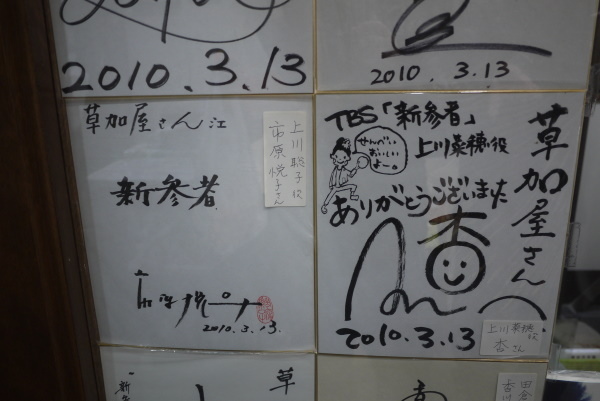 2010.3.13
2010.3.13
草加屋さん江
新参者
上川聡子役
市原悦子さん
2010.3.13.
TBS「新参者」
上川菜穂役
せんべい
おいしい
ありがとうございました
草加屋さんへ
杏
2010.3.13
上川菜穂役
杏さん
草
田倉